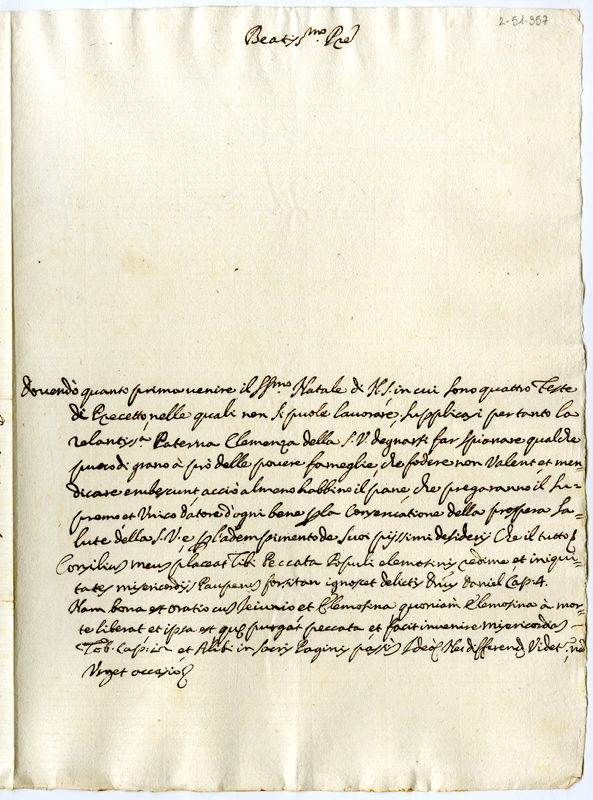 2-51-357
Beatiss.mo Pre
dovendo quanto prima venire il SS.mo Natale di N.S. in cui sono quattro Feste
di Precetto, nelle quali non si puole lavorare, supplicasi per tanto la
zelantiss.a Paterna Clemenza della S.V. degnarsi far spianare qualche
di grano à prò delle povere fameglie, che fodere non Valent et men-
dicare erubescunt acciò almeno habbino il pane, che pregaranno il Su-
premo et Unico datore d'ogni bene p la Conservatione della prospera Sa-
lute della S.V. e p l'adempimento de suoi pijssimi desiderij Che il tutto
Consilium meum placeat Tibi Peccata Populi elemosinis redime et iniqui-
tates misericordijs Pauperum forsitan ignoscet delictis Daniel Cap. 4.
Nam bona est oratio cum Ieiunio et Elemosina quoniam Elemosina à mor-
te liberat et ipsa est quę purgat peccata et facit invenire misericordias
Tob. Cap. 12 et Alibi in sacris Paginis differend Videt
Urget occasio